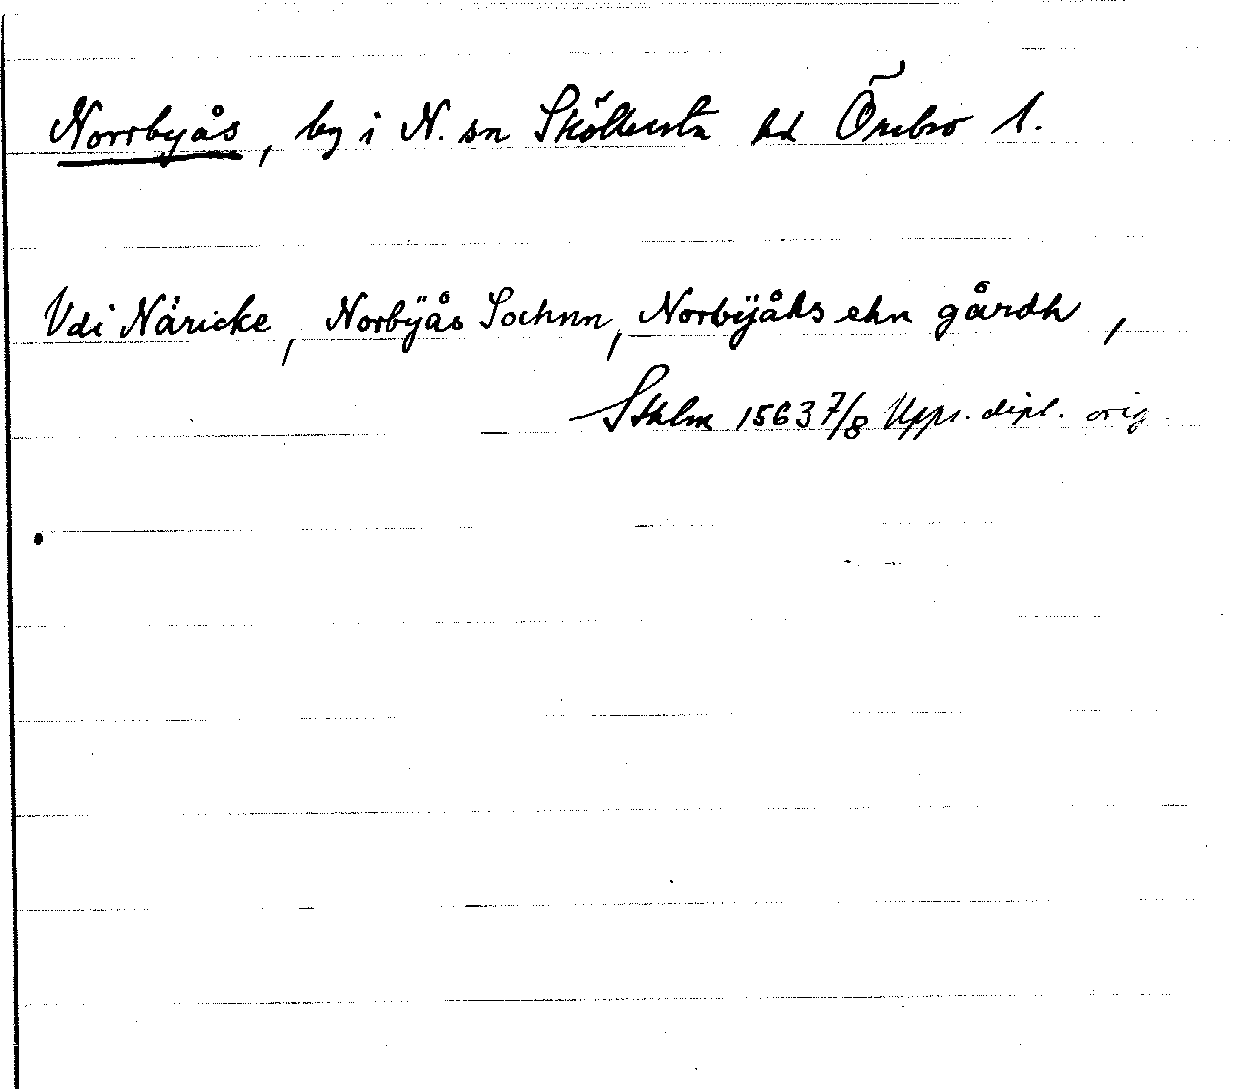 Norrbyås, by i N. sn Sköllersta hd Örebro l.
Vdi Näricke, Norbÿås Sochnn, Norbÿåhs ehn gårdh,
Sthlm 1563 7/8 Upps. dipl. orig.